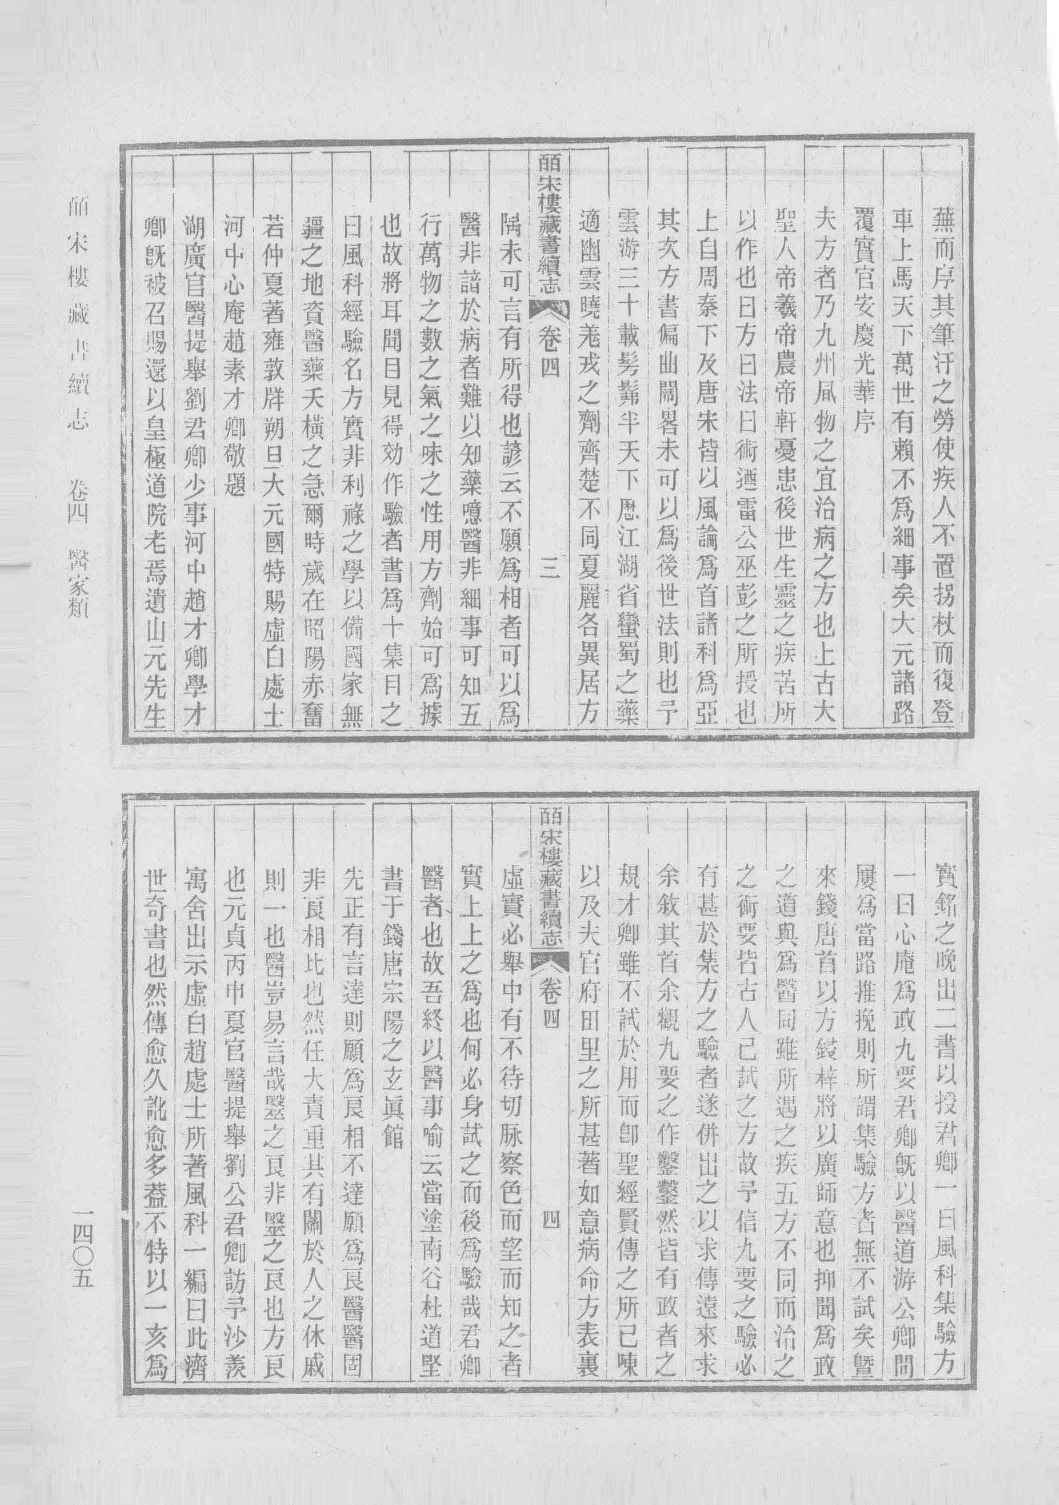 蕪而序其筆汗之勞使疾人不置拐杖而復登
車上馬天下萬世有賴不爲細事矣大元諸路
覆實官安慶光華序
夫方者乃九州風物之宜治病之方也上古大
聖人帝羲帝農帝軒憂患後世生靈之疾苦所
以作也曰方曰法曰術迺雷公巫彭之所授也
上自周秦下及唐宋皆以風論爲首諸科爲亞
其次方書偏曲闊畧未可以爲後世法則也予
雲游三十載髣髴半天下愿江湖省蠻蜀之藥
適幽雲曉羗戎之劑齊楚不同夏麗各異居方
皕宋樓藏書續志 卷四 三
隅未可言有所得也諺云不願爲相者可以爲
醫非諳於病者難以知藥噫醫非細事可知五
行萬物之數之氣之味之性用方劑始可爲據
也故將耳聞目見得効作驗者書爲十集目之
曰風科經驗名方實非利祿之學以備國家無
疆之地資醫藥夭橫之急爾時歲在昭陽赤奮
若仲夏著雍敦牂朔旦大元國特賜虛白處士
河中心庵趙素才卿敬題
湖廣官醫提舉劉君卿少事河中趙才卿學才
卿旣被召賜還以皇極道院老焉遺山元先生
實銘之晚出二書以授君卿一曰風科集驗方
一曰心庵爲政九要君卿旣以醫道游公卿間
屢爲當路推挽則所謂集驗方者無不試矣曁
來錢唐首以方鋟梓將以廣師意也抑聞爲政
之道與爲醫同雖所遇之疾五方不同而治之
之術要皆古人已試之方故予信九要之驗必
有甚於集方之驗者遂併出之以求傳遠來求
余敘其首余觀九要之作鑿鑿然皆有政者之
規才卿雖不試於用而卽聖經賢傳之所已陳
以及夫官府田里之所甚著如意病命方表裏
皕宋樓藏書續志 卷四 四
虛實必舉中有不待切脉察色而望而知之者
實上上之爲也何必身試之而後爲驗哉君卿
醫者也故吾終以醫事喻云當塗南谷杜道堅
書于錢唐宗陽之玄眞館
先正有言達則願爲良相不達願爲良醫醫固
非良相比也然任大責重其有關於人之休戚
則一也醫豈易言哉毉之良非毉之良也方良
也元貞丙申夏官醫提舉劉公君卿訪予沙羨
寓舍出示虛白趙處士所著風科一編曰此濟
世奇書也然傳愈久訛愈多葢不特以一亥爲
皕宋樓藏書續志 卷四 醫家類
一四〇五